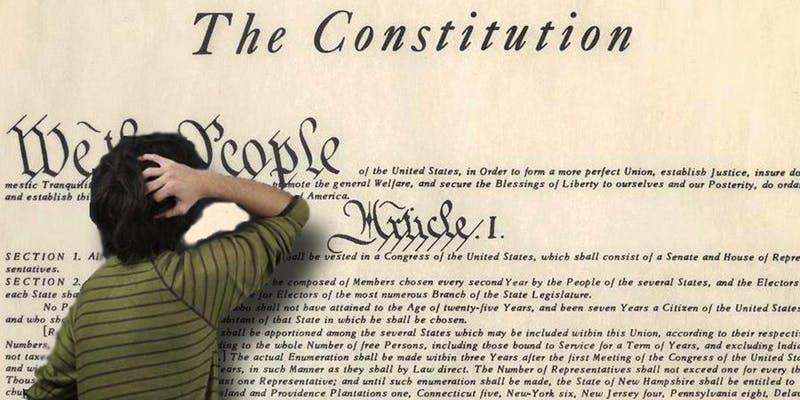 The Constitution
We the People
of the United States, in Order to form a more perfect Union, establish Justice, insure do
mestic the general Welfare, and secure the Blessings of Liberty to ourselves and our Posterity, do orda
and establish America.
Article. I.
SECTION 1. shall be vested in a Congress of the United States, which shall consist of a Senate and House of Repre
sentatives.
SECTION 2. be composed of Members chosen every second Year by the People of the several States, and the Electors
each State for Electors of the most numerous Branch of the State Legislature.
No who shall not have attained to the Age of twenty-five Years, and been seven Years a Citizen of the United States
and who of that State in which he shall be chosen.
shall be apportioned among the several States which may be included within this Union, according to their respecti
Numbers, to the whole Number of free Persons, including those bound to Service for a Term of Years, and excluding India
not .] The actual Enumeration shall be made within three Years after the first Meeting of the Congress of the United Sta
and in such Manner as they shall by Law direct. The Number of Representatives shall not exceed one for every th
one Representative; and until such enumeration shall be made, the State of New Hampshire shall be entitled to
and Providence Plantations one, Connecticut five, New-York six, New Jersey four, Pennsylvania eight, Delaw